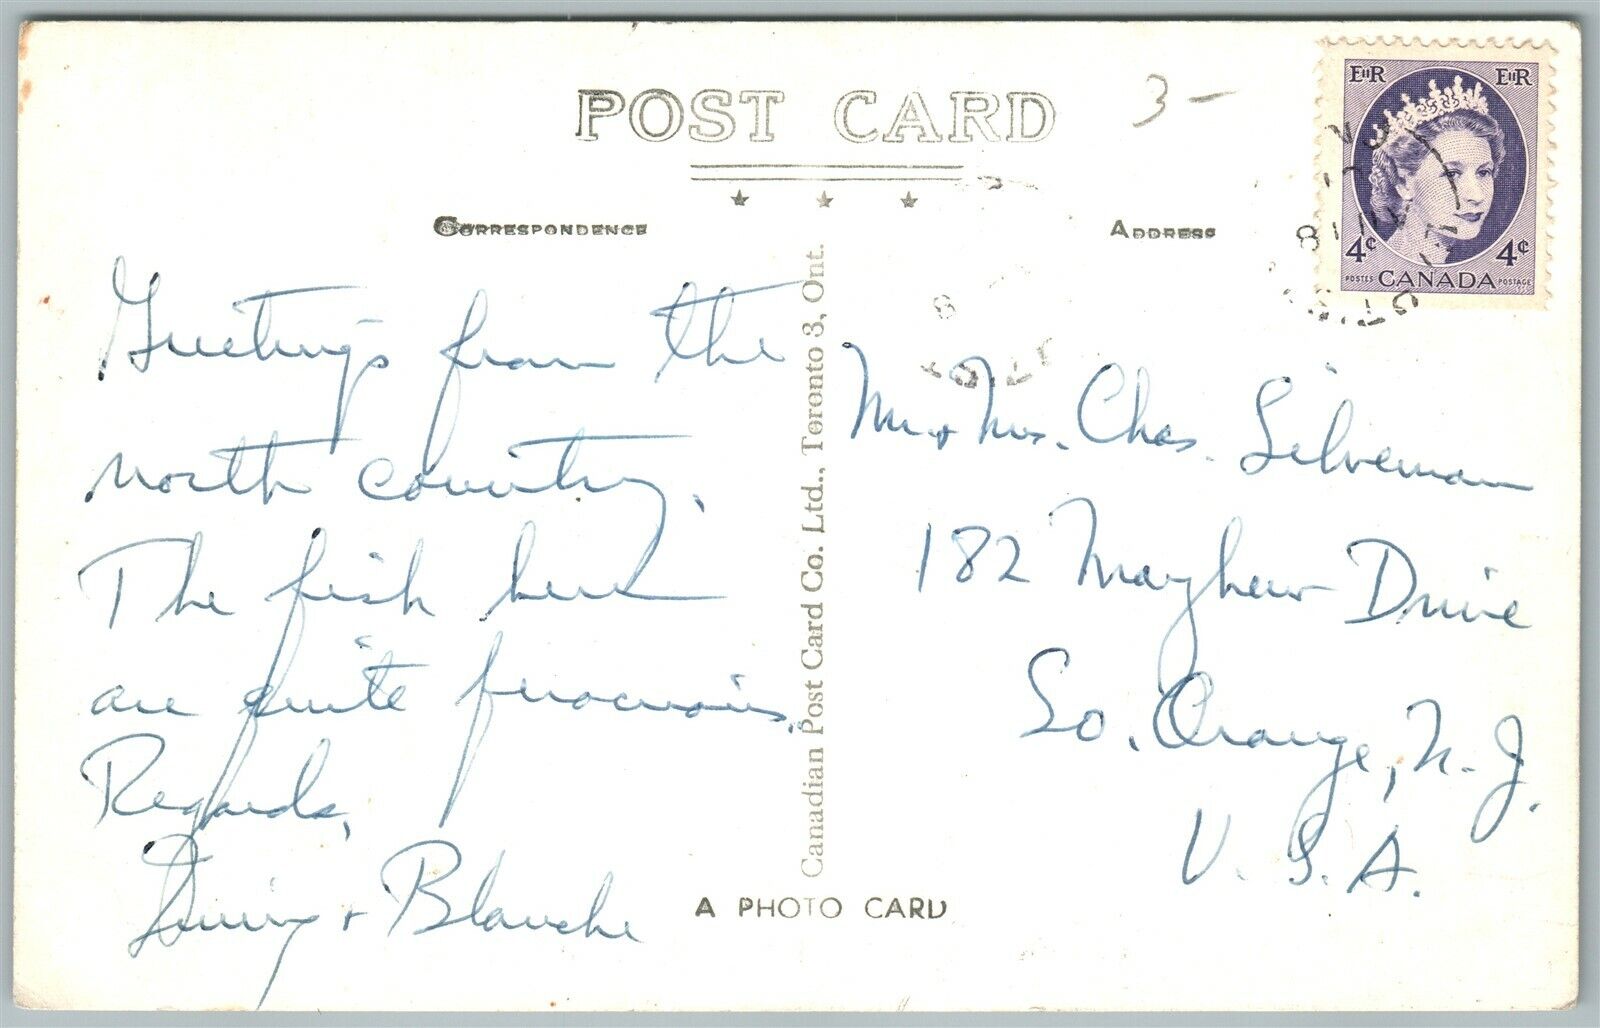 POST CARD
3-
CORRESPONDENCE
ADDRESS
EIIR EIIR
4¢ 4¢
POSTES CANADA POSTAGE
Greetings from the
north country.
The fish here
are quite ferocious.
Regards,
Irving + Blanche
Canadian Post Card Co. Ltd., Toronto 3, Ont.
Mr + Mrs. Chas. Silverman
182 Mayhew Drive
So. Orange, N.J.
U.S.A.
A PHOTO CARD